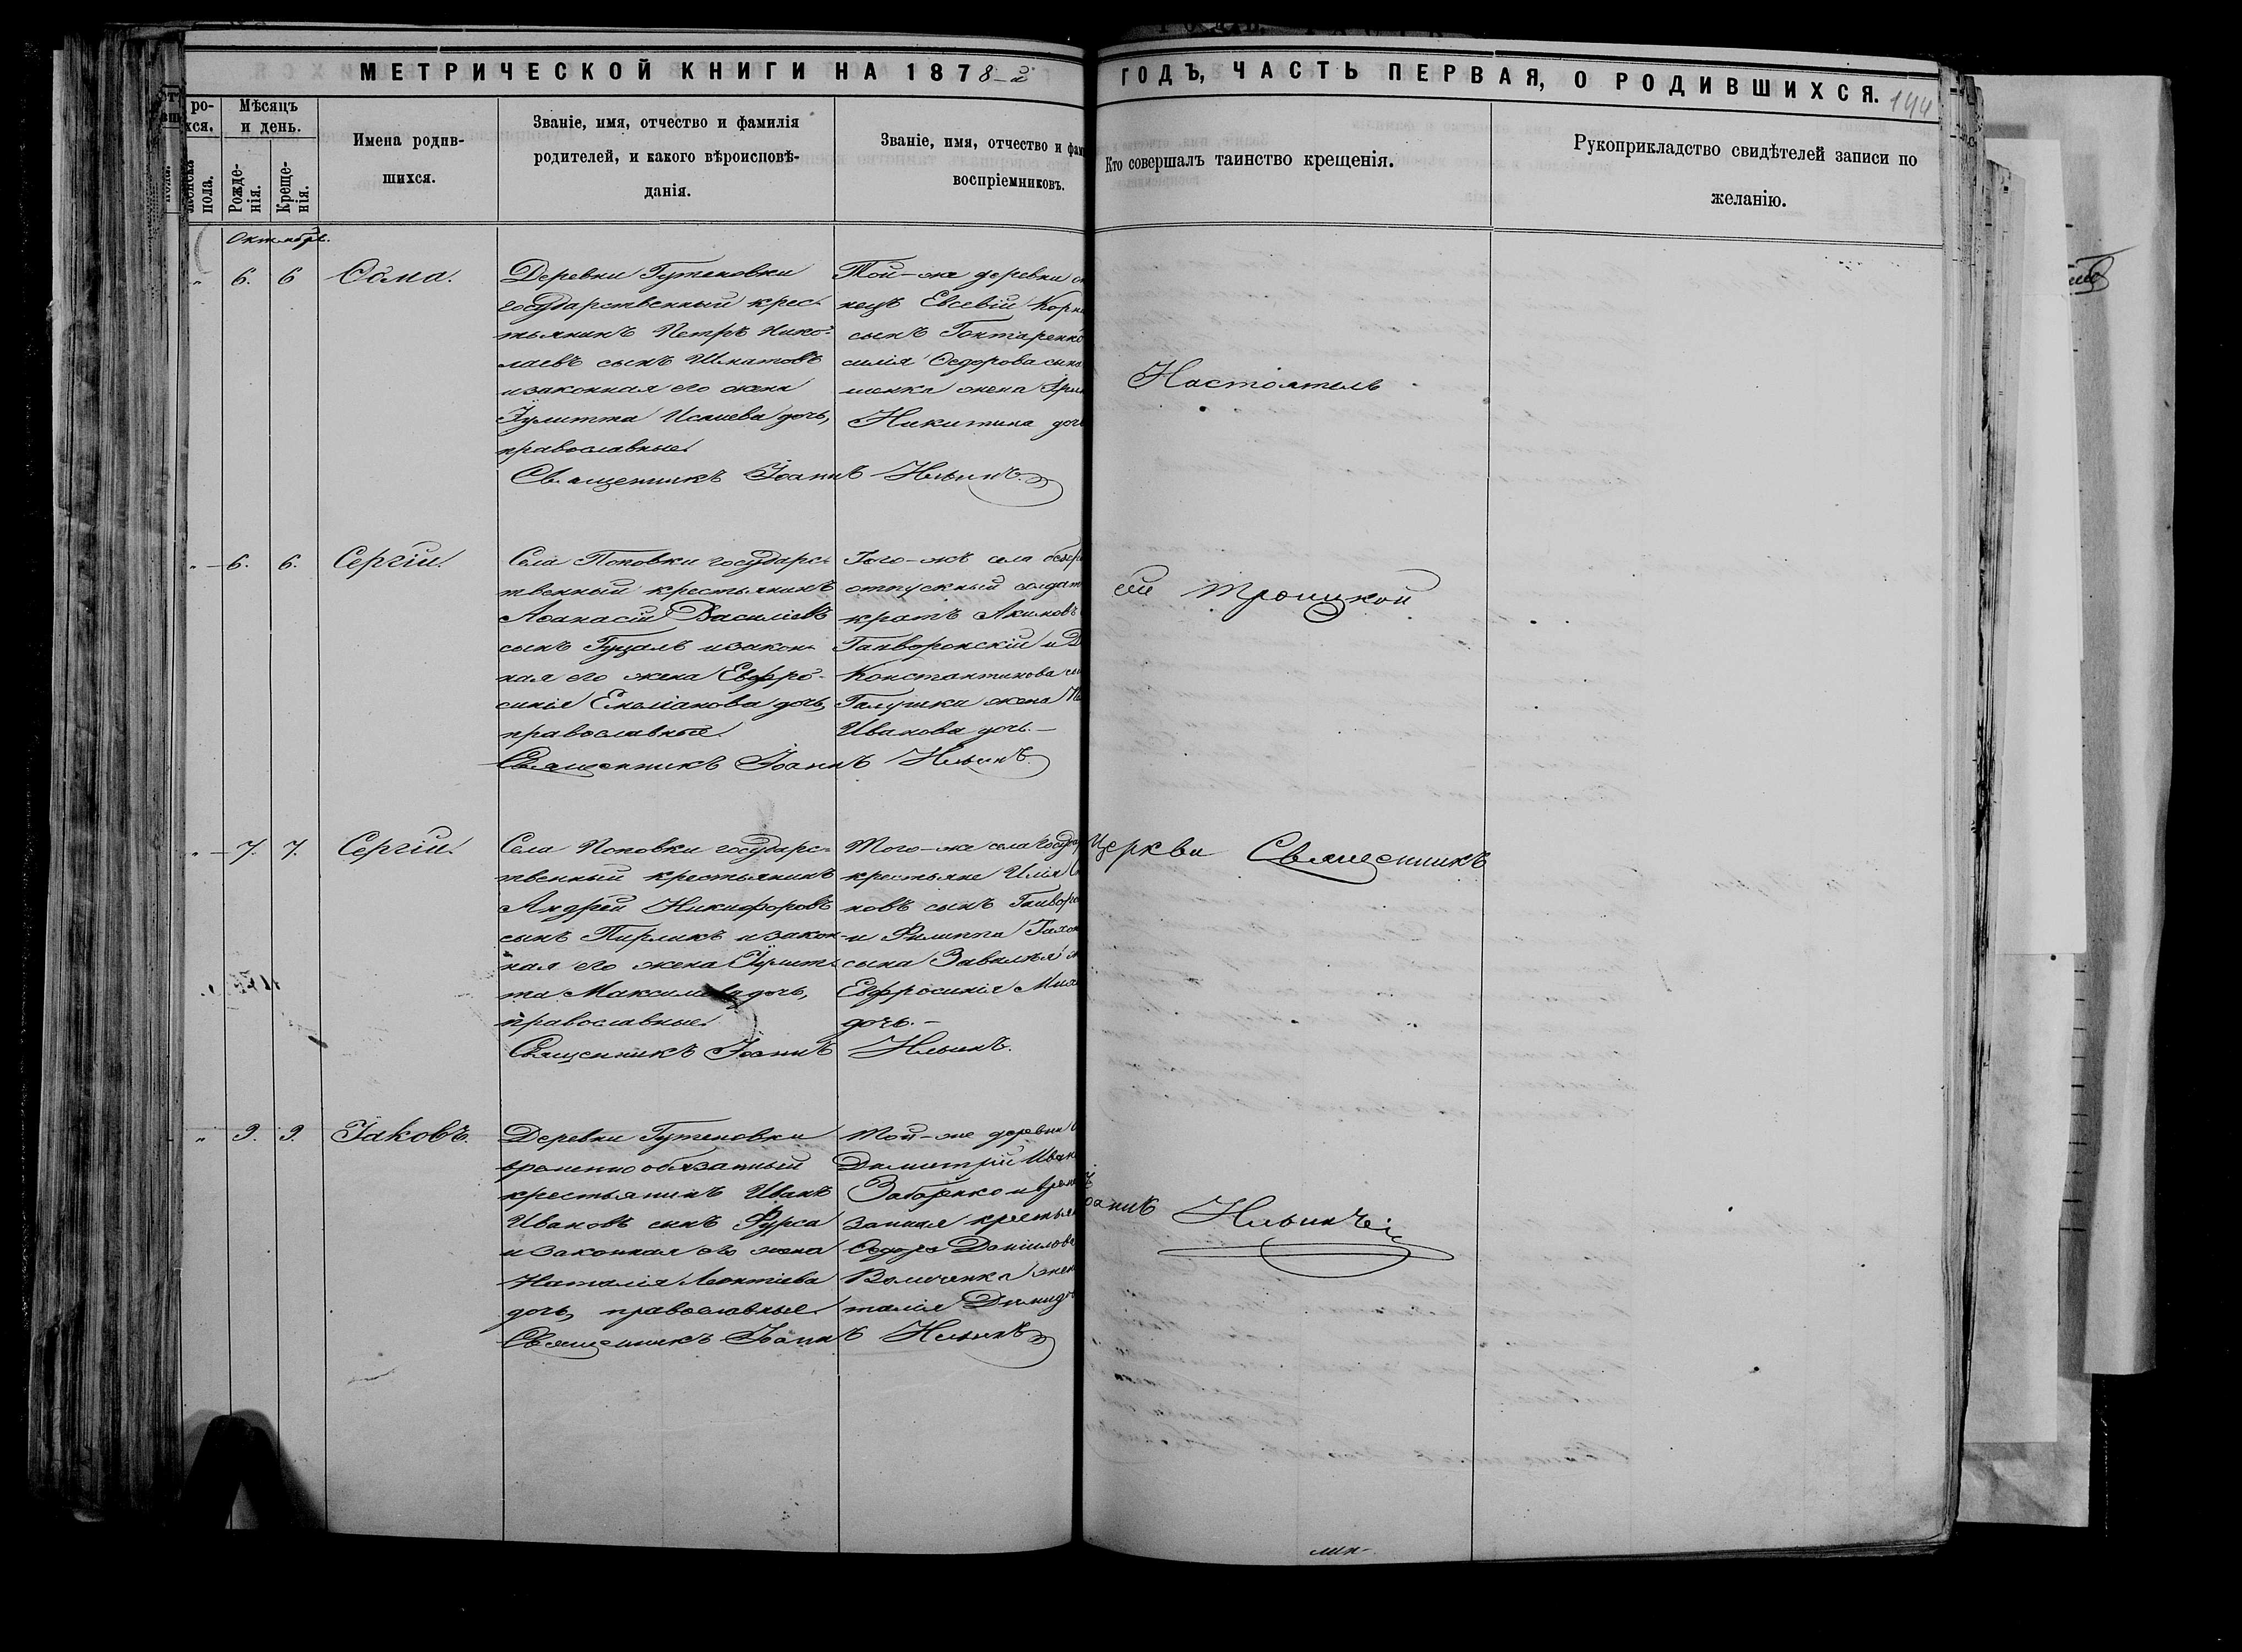 МЕТРИЧЕСКОЙ КНИГИ НА 1878-й
ГОДЪ, ЧАСТЬ ПЕРВАЯ, О РОДИВШИХСЯ. 144
ро-
хся.
Мѣсяцъ
и день.
женска
пола.
Рожде-
нія.
Креще-
нія.
Имена родив-
шихся.
Званіе, имя, отчество и фамилія
родителей, и какого вѣроисповѣ-
данія.
Званіе, имя, отчество и фам
воспріемниковъ.
Кто совершалъ таинство крещенія.
Рукоприкладство свидѣтелей записи по
желанію.
Октябрь.
6. 6 Ѳома.
Деревни Гутеновки
государственный крес-
тьянинъ Петръ Нико-
лаевъ сынъ Шматовъ
и законная его жена
Іулитта Исаиева дочь,
православные.
Той-же деревни
нецъ Евсевій Корни
сынъ Гонтаренко
силія Ѳедорова сына
шенка жена Ири
Никитина дочь
Священникъ Іоаннъ Ильинъ.
6. 6. Сергій.
Села Поповки государс-
твенный крестьянинъ
Аѳанасій Василіевъ
сынъ Гуцалъ и закон-
ная его жена Евфро-
синія Емеліанова дочь,
православные.
Того-жъ села безср
отпускный солдат
кратъ Акимовъ
Гайворонскій и Д
Константинова сы
Галушки жена
Иванова дочь.-
Священникъ Іоаннъ Ильинъ.
7. 7. Сергій.
Села Поповки государс-
твенный крестьянинъ
Андрей Никифоровъ
сынъ Пирликъ и закон-
ная его жена Іулит-
та Максимова дочь,
православные.
Того-же села государ
крестьяне Илія
новъ сынъ Гайворо
и Филиппа
сына Завалѣя
Евфросинія Миха
дочь.-
Священникъ Іоаннъ Ильинъ.
9. 9. Іаковъ.
Деревни Гутеновки
временно обязанный
крестьянинъ Иванъ
Ивановъ сынъ Фурса
и законная его жена
Наталія Леонтіева
дочь, православные.
Той-же деревни
Димитрій Иван
Заборенко и врем
занная крестья
Ѳедора Даніилова
жен
талія Демидо
Священникъ Іоаннъ Ильинъ
Настоятель
сей Троицкой
Церкви Священникъ
Іоаннъ Ильинъ